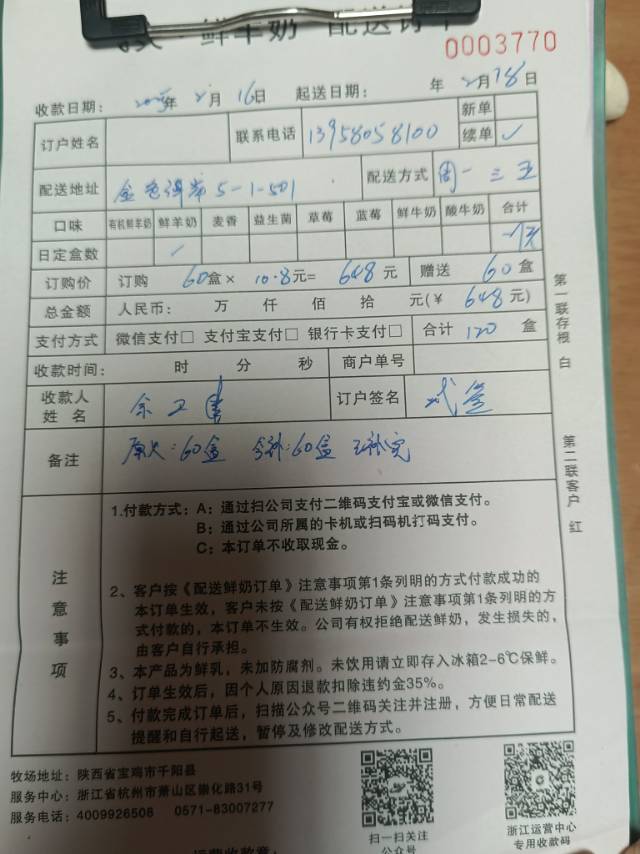 鲜羊奶 配送订单
0003770
收款日期: 2025年 2月 16日 起送日期: 年 2月18日
订户姓名 联系电话 13958058100 新单
续单 ✓
配送地址 5-1-501 配送方式 周一 三 五
口味 有机鲜羊奶 鲜羊奶 麦香 益生菌 草莓 蓝莓 鲜牛奶 酸牛奶 合计
日定盒数
订购价 订购 60盒× 10.8元= 648元 赠送 60盒
总金额 人民币: 万 仟 佰 拾 元(¥ 648元)
支付方式 微信支付□ 支付宝支付□ 银行卡支付□ 合计 120 盒
收款时间: 时 分 秒 商户单号
收款人姓名 订户签名
备注 :60盒 今补:60盒 已补完
注意事项
1.付款方式: A: 通过扫公司支付二维码支付宝或微信支付。
B: 通过公司所属的卡机或扫码机打码支付。
C: 本订单不收取现金。
2、客户按《配送鲜奶订单》注意事项第1条列明的方式付款成功的
本订单生效, 客户未按《配送鲜奶订单》注意事项第1条列明的方
式付款的, 本订单不生效。公司有权拒绝配送鲜奶, 发生损失的,
由客户自行承担。
3、本产品为鲜乳, 未加防腐剂。未饮用请立即存入冰箱2-6℃保鲜。
4、订单生效后, 因个人原因退款扣除违约金35%。
5、付款完成订单后, 扫描公众号二维码关注并注册, 方便日常配送
提醒和自行起送, 暂停及修改配送方式。
第一联存根 白
第二联客户 红
牧场地址: 陕西省宝鸡市千阳县
服务中心: 浙江省杭州市萧山区崇化路31号
服务电话: 4009926508 0571-83007277
扫一扫关注
公众号
浙江运营中心
专用收款码
运营收款章: